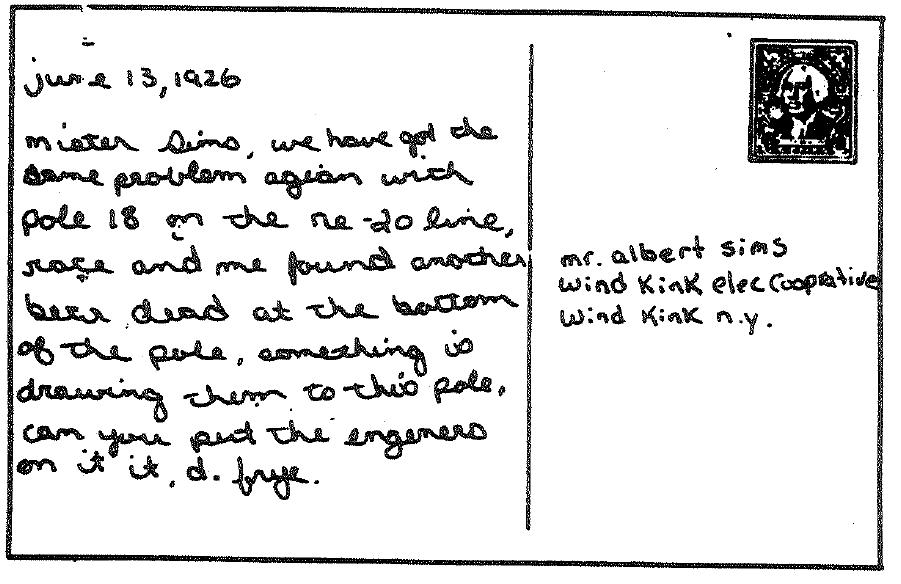 june 13, 1926
mister Sims, we have got the
same problem agian with
pole 18 on the ne-20 line,
and me found another
bear dead at the bottom
of the pole, something is
drawing them to this pole.
can you put the engeners
on it it, d. frye.
mr. albert sims
wind kink elec Cooprative
wind kink n.y.